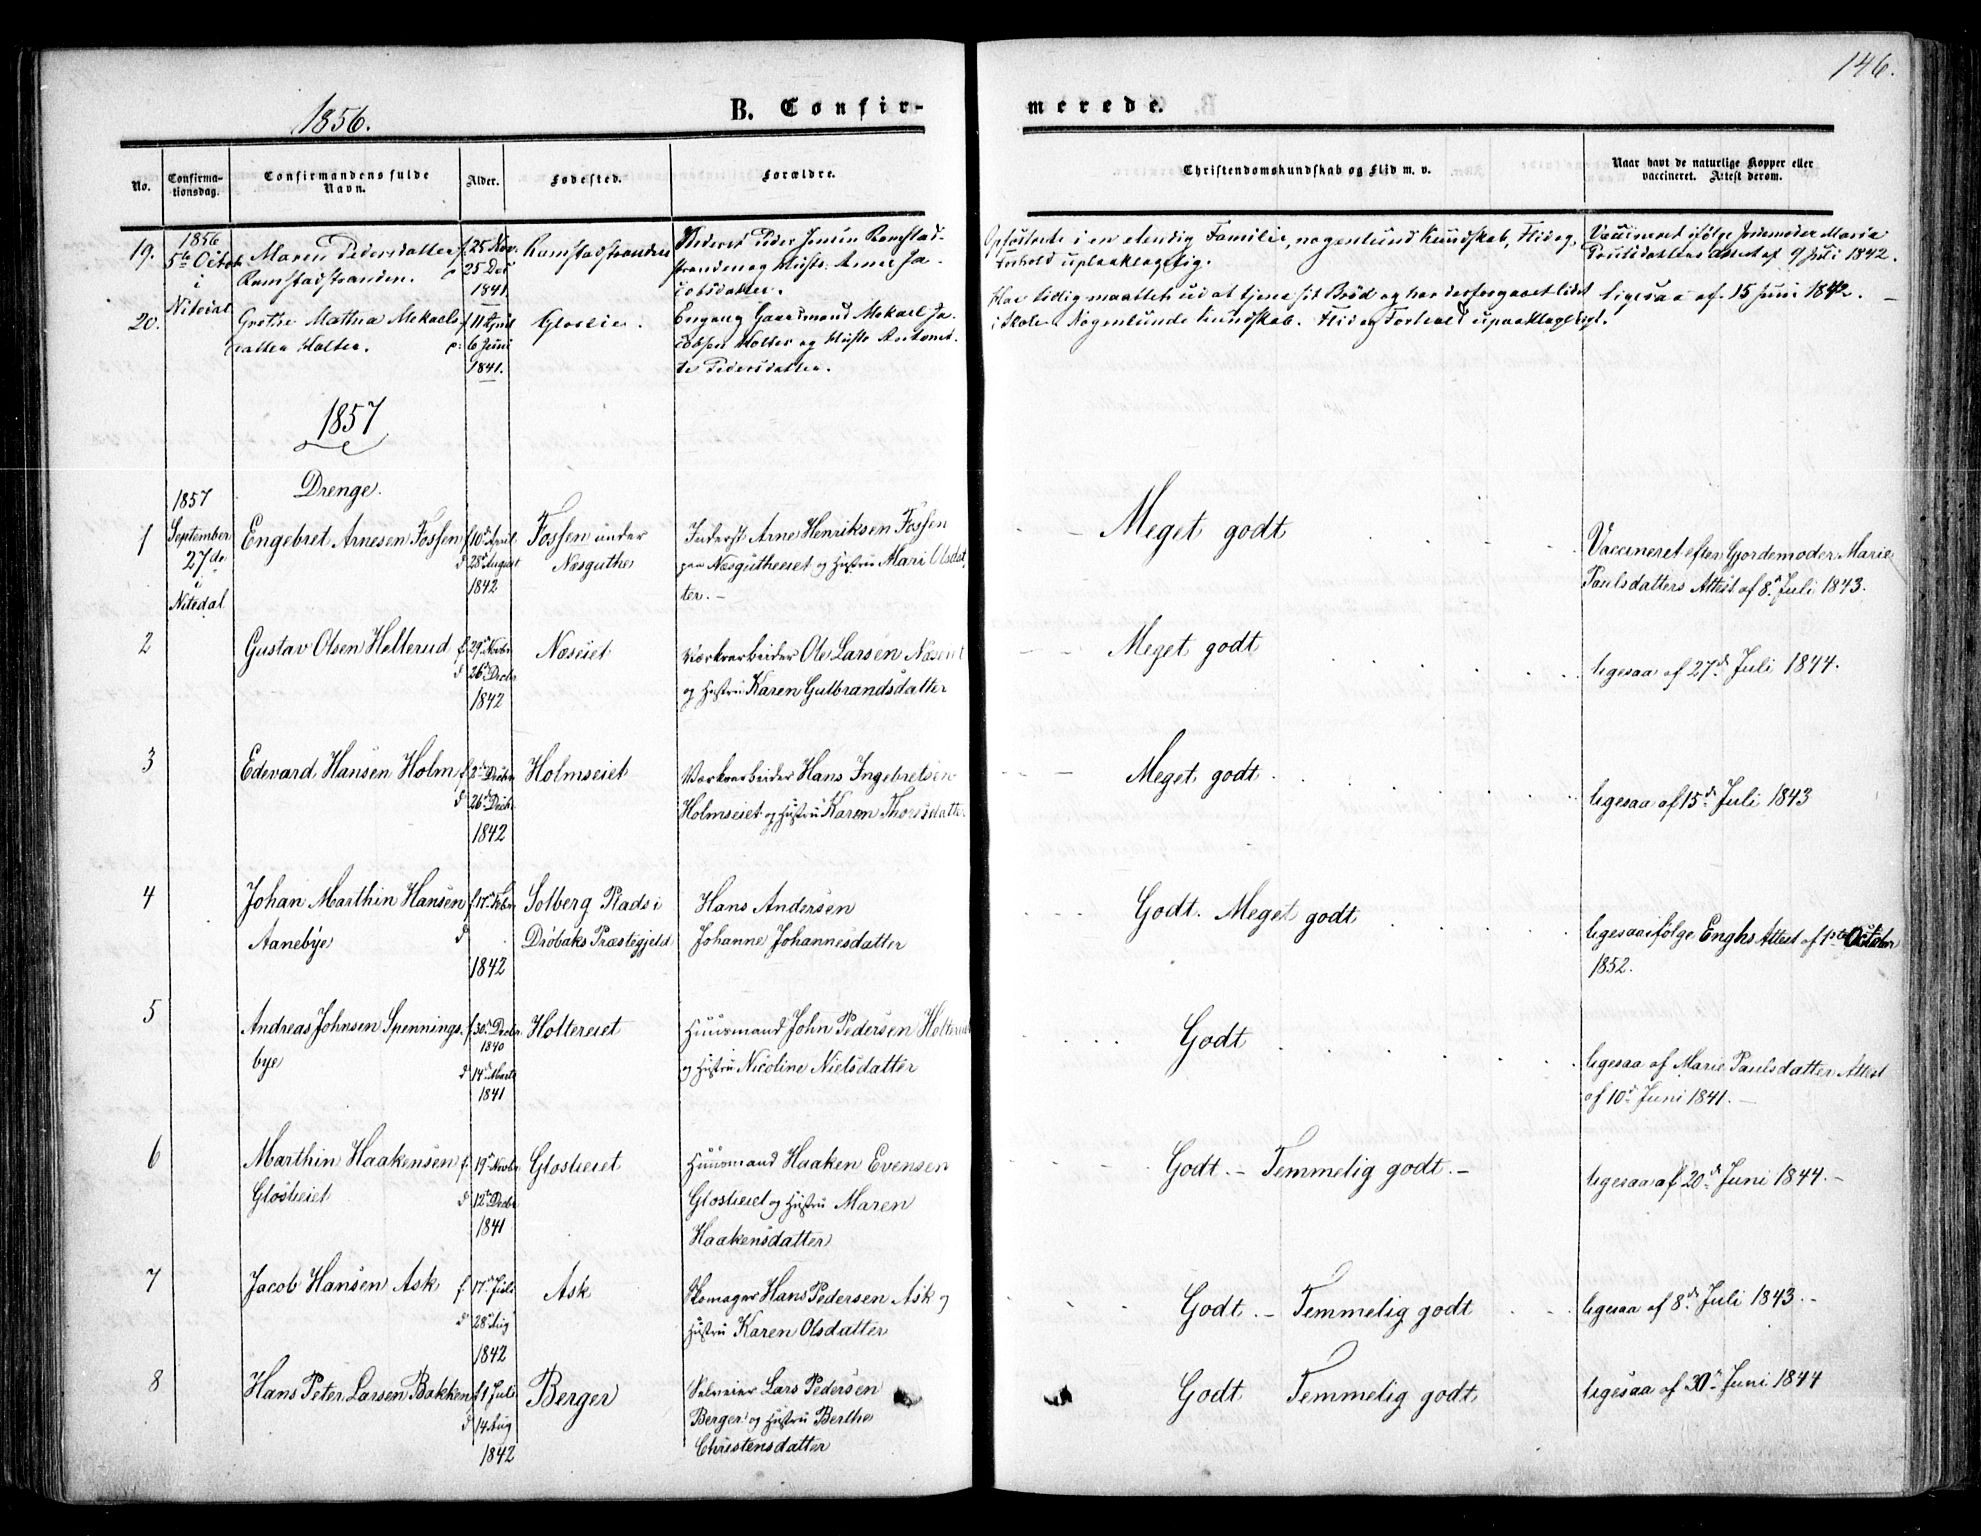 146.
1856.
B. Confir-
merede.
No.
Confirma-
tionsdag.
Confirmandens fulde
Navn.
Alder.
Fødested.
Forældre.
Christendomskundskab og Flid m. v.
Naar havt de naturlige Kopper eller
vaccineret. Attest derom.
19.
1856
5te Octob
i
Nitedal
Maren Pedersdatter
Ramstadstranden.
f. 25 Nov.
25 Dec
1841
Ramstadstranden
Peder Jensen Ramstad-
stranden og Hustr: Anne Ja-
cobsdatter.
i en elendig Familie, nogenlund Kundskab, Flid og
Forhold upaaklagelig.
Vaccineret ifølge Jordemoder Marie
Poulsdatters Attest af 9 Juli 1842.
20.
Grethe Mathea Mekaels
datter Holter.
f. 11 April
6 Juni
1841.
Gloslie.
Engang Gaardmand Mekael Ja-
cobsen Holter og Hustr Antonet-
te Pedersdatter.
Har tidlig maattet ud at tjene sit Brød og har derfor gaaet lidet
i Skole. Nogenlunde Kundskab. Flid og Forhold upaaklageligt.
ligesaa af 15 Juni 1842. —
1857
Drenge.
1
1857
September
27de
i
Nitedal
Engebret Arnesen Fossen
f. 10de April
d 28de August
1842
Fossen under
Næsguthe
Inderst Arne Henriksen Fossen
paa Næsgutheeiet og Hustru Mari Olsdat
ter. —
Meget godt
Vaccineret efter Gjordemoder Marie
Paulsdatters Attest af 8de Juli 1843.
2
Gustav Olsen Hellerud
f 29de Novbr
d 26de Decbr
1842
Næseiet
Værkarbeider Ole Larsen Næseiet
og Hustru Karen Gulbrandsdatter
Meget godt
ligesaa af 27de Juli 1844.
3
Edevard Hansen Holm
f 2de Decbr
d 26de Decbr.
1842
Holmseiet
Værkarbeider Hans Ingebretsen
Holmseiet og Hustru Karen Thorsdatter
Meget godt
ligesaa af 15de Juli 1843
4
Johan Marthin Hansen
Aanebye
f 17de Febr
d
1842
Solberg Plads i
Drøbaks Præstegjeld
Hans Andersen
Johanne Johannesdatter
Godt. Meget godt
ligesaa ifølge Enghs Attest af 1ste October
1852.
5
Andreas Johnsen Spennings-
bye
f. 30de Decbr.
1840
d 14de Marts
1841
Holtereiet
Huusmand John Pedersen Holtereiet
og Hustru Nicoline Nielsdatter
Godt
ligesaa af Marie Paulsdatters Attest
af 10de Juni 1841. —
6
Marthin Haakensen
Gloslieiet
f. 19de Novbr
d 12te Decbr
1841
Gloslieiet
Huusmand Haaken Evensen
Gloslieiet og Hustru Maren
Haakensdatter
Godt. — Temmelig godt. —
ligesaa af 20de Juni 1844. —
7
Jacob Hansen Ask
f. 17de Juli
d 28de Aug
1842
Ask
Skomager Hans Pedersen Ask og
Hustru Karen Olsdatter
Godt. — Temmelig godt
ligesaa af 8de Juli 1843. —
8
Hans Peter Larsen Bakken
f 1 Juli
d 14 Aug
1842
Berger
Selveier Lars Pedersen
Berger og Hustru Berthe
Christensdatter
Godt Temmelig godt,
ligesaa af 30te Juni 1844